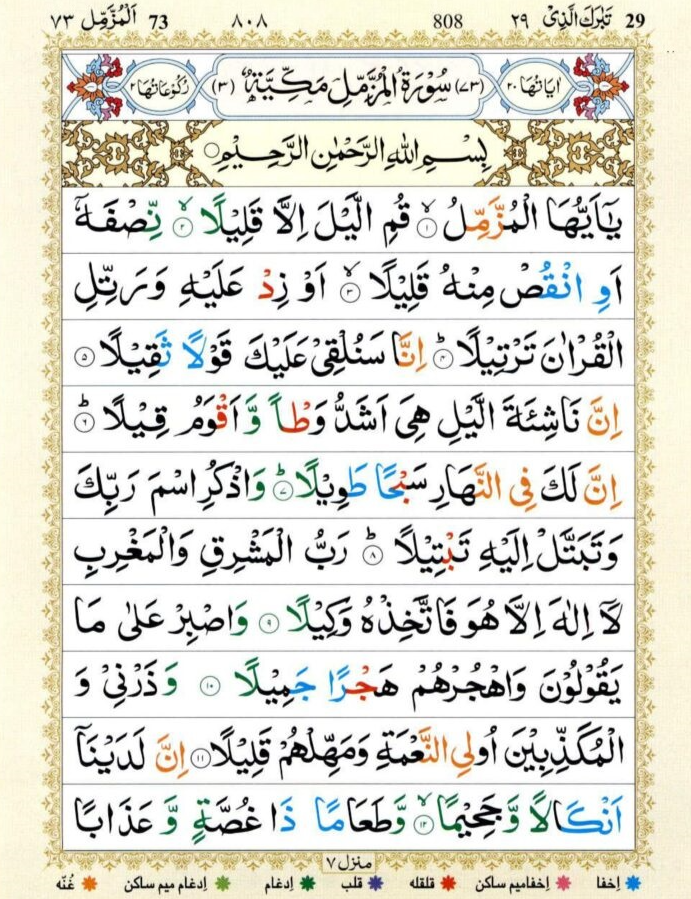 29 تَبٰرَكَ الَّذِىْ ٢٩ 808 ٨٠٨ 73 اَلْمُزَّمِّل ٧٣
اٰيَاتُهَا ٢٠ (٧٣) سُوْرَةُ الْمُزَّمِّلِ مَكِّيَّةٌ (٣) رُكُوْعَاتُهَا ٢
بِسْمِ اللّٰهِ الرَّحْمٰنِ الرَّحِيْمِ
يٰۤاَيُّهَا الْمُزَّمِّلُ ۙ‏﴿۱﴾ قُمِ الَّيْلَ اِلَّا قَلِيْلًا ۙ‏﴿۲﴾ نِّصْفَهٗۤ
اَوِ انْقُصْ مِنْهُ قَلِيْلًا ۙ‏﴿۳﴾ اَوْ زِدْ عَلَيْهِ وَرَتِّلِ
الْقُرْاٰنَ تَرْتِيْلًا ؕ‏﴿۴﴾ اِنَّا سَنُلْقِىْ عَلَيْكَ قَوْلًا ثَقِيْلًا ﴿۵﴾
اِنَّ نَاشِئَةَ الَّيْلِ هِىَ اَشَدُّ وَطْاً وَّاَقْوَمُ قِيْلًا ؕ‏﴿۶﴾
اِنَّ لَكَ فِى النَّهَارِ سَبْحًا طَوِيْلًا ؕ‏﴿۷﴾ وَاذْكُرِ اسْمَ رَبِّكَ
وَتَبَتَّلْ اِلَيْهِ تَبْتِيْلًا ؕ‏﴿۸﴾ رَبُّ الْمَشْرِقِ وَالْمَغْرِبِ
لَاۤ اِلٰهَ اِلَّا هُوَ فَاتَّخِذْهُ وَكِيْلًا ﴿۹﴾ وَاصْبِرْ عَلٰى مَا
يَقُوْلُوْنَ وَاهْجُرْهُمْ هَجْرًا جَمِيْلًا ﴿۱۰﴾ وَذَرْنِىْ وَ
الْمُكَذِّبِيْنَ اُولِى النَّعْمَةِ وَمَهِّلْهُمْ قَلِيْلًا ﴿۱۱﴾ اِنَّ لَدَيْنَاۤ
اَنْكَالًا وَّجَحِيْمًا ۙ‏﴿۱۲﴾ وَّطَعَامًا ذَا غُصَّةٍ وَّعَذَابًا
منزل ٧
اِخفا اِخفامیم ساکن قلقله قلب اِدغام اِدغام میم ساکن غُنّه